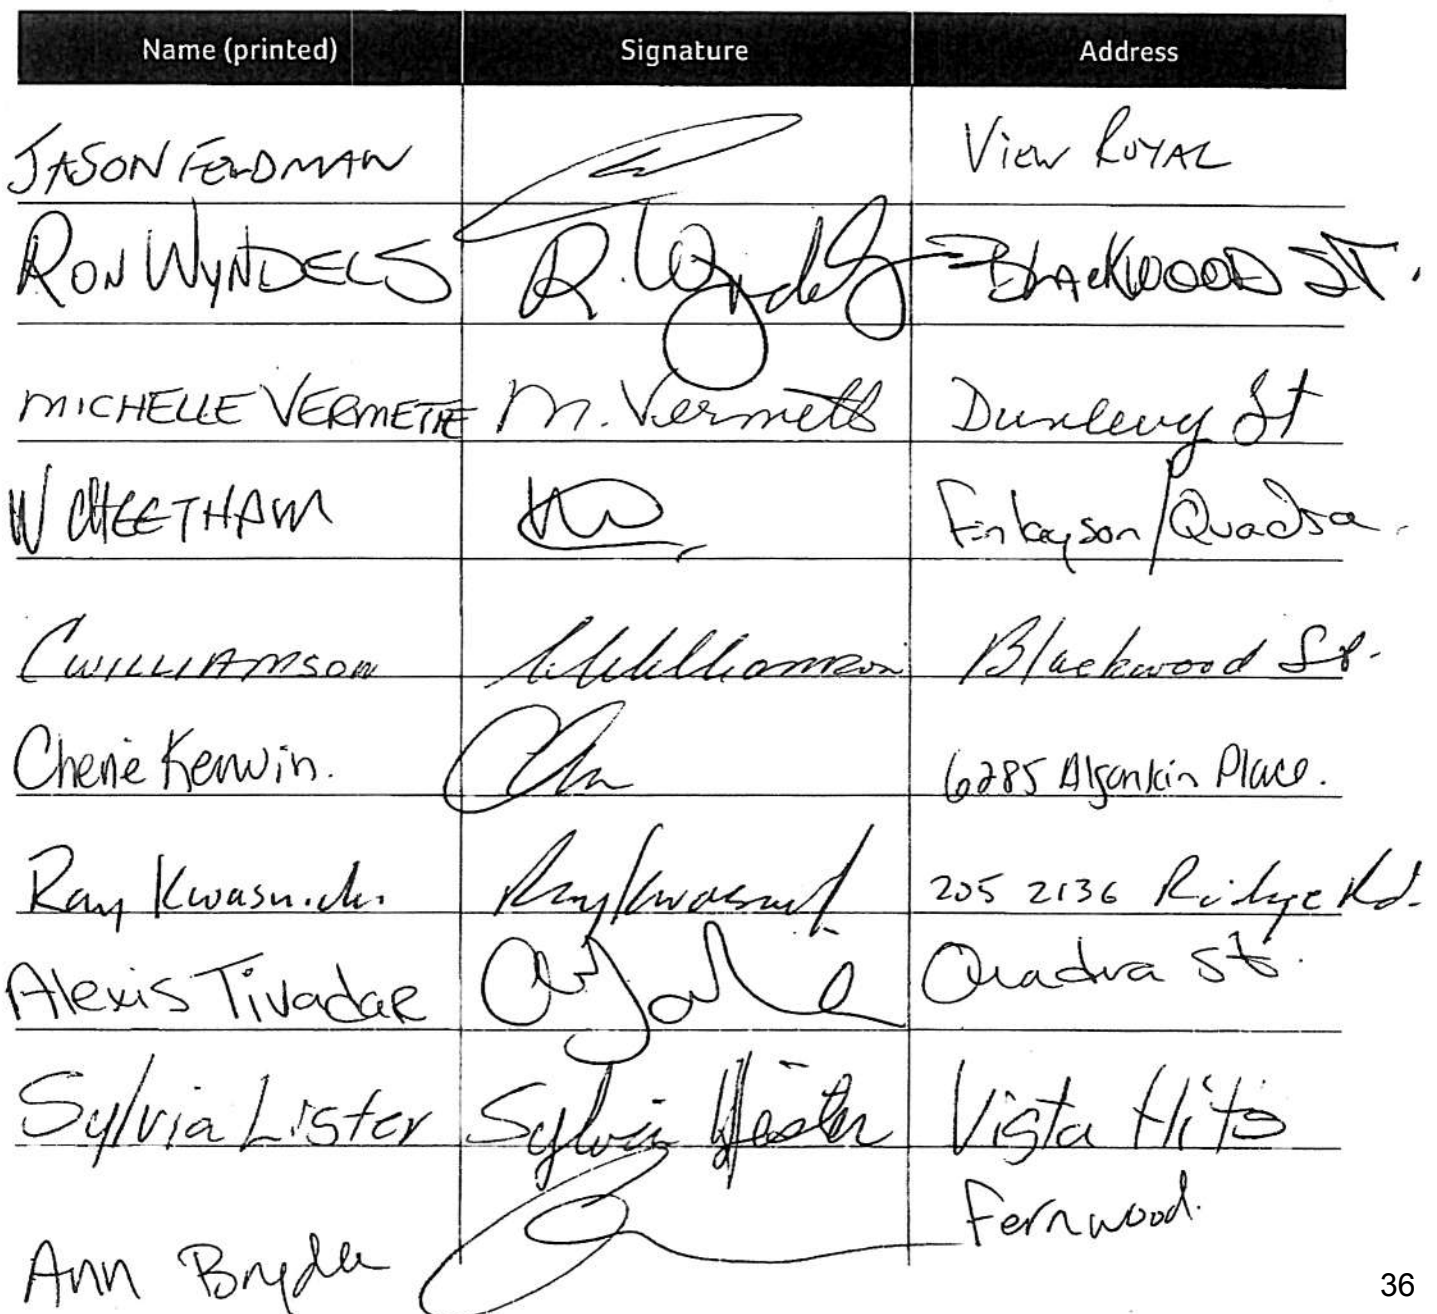 Name (printed) Signature Address
JASON FELDMAN View ROYAL
RON WYNDELS R. Wyndels BLACKWOOD ST.
MICHELLE VERMETTE M. Vermette Dunlevy St
W CHEETHAM Finlayson/Quadra.
C WILLIAMSON C Williamson Blackwood St.
Cherie Kerwin. 6285 Algonkin Place.
Ray Ray 205 2136 Ridge Rd.
Alexis Tivadar Quadra St.
Sylvia Lister Sylvia Lister Vista Hts
Fernwood.
Ann
36